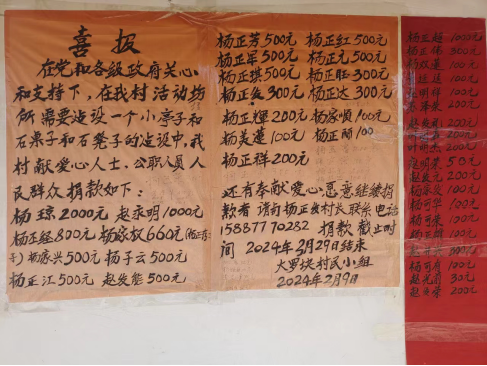 喜报
在党和各级政府关心
和支持下,在我村活动场
所需要造设一个小亭子和
石桌子和石凳子的造设中,我
村献爱心人士,公职人员人
民群众捐款如下:
杨琼2000元 赵永明1000元
杨正经800元 杨家权660元
子) 杨家兴500元 杨子云500元
杨正江500元 赵发能500元
杨正芳500元 杨正红500元
杨正军500元 杨正元500元
杨正琪500元 杨正旺300元
杨正 300元 杨正达300元
杨正辉200元 杨家顺100元
杨美莲100元 杨正丽100元
杨正祥200元
还有奉献爱心愿意继续捐
款者请向杨正发村长联系电话
15887770282 捐款截止时
间 2024年3月29日结束
大罗块村民小组
2024年2月9日
杨正超 1000元
杨正伟 300元
100元
100元
100元
200元
200元
200元
100元
50元
赵 元 200元
杨家 100元
杨可华 100元
杨可荣 100元
100元
杨可 100元
30元
200元